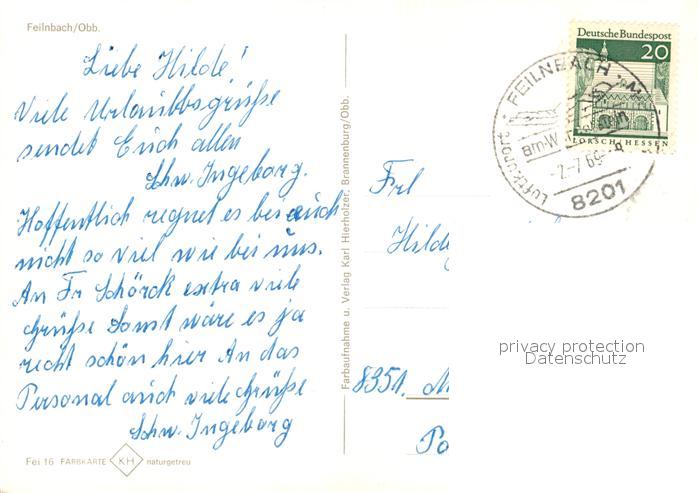 Feilnbach/Obb.
Liebe Hilde!
Viele Urlaubbsgrüße
sendet Euch allen
Schw. Ingeborg.
Hoffentlich regnet es bei euch
nicht so viel wie bei uns.
An Fr Schörck extra viele
Grüße Sonst wäre es ja
recht schön hier An das
Personal auch viele Grüße
Schw. Ingeborg
Fei 16 FARBKARTE KH naturgetreu
Farbaufnahme u. Verlag Karl Hierholzer, Brannenburg/Obb.
Deutsche Bundespost
20
LORSCH HESSEN
Luftkurort * FEILNBACH
-2-7.69
8201
Frl
Hilde
8351.
privacy protection
Datenschutz